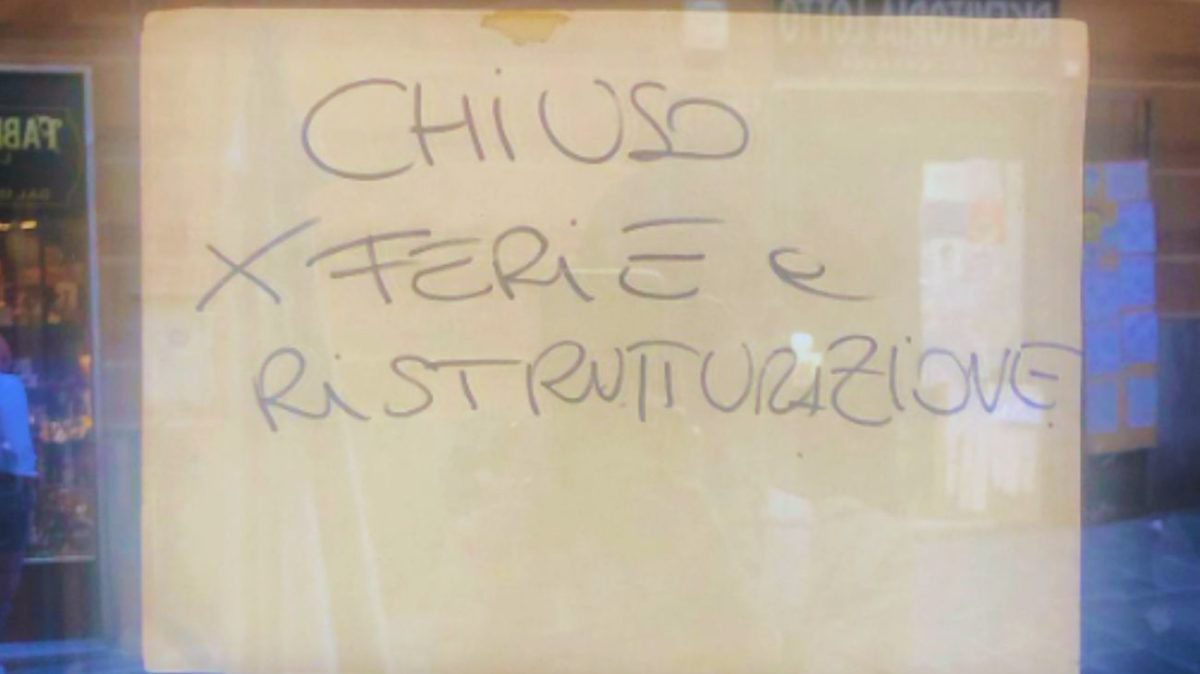 CHIUSO
X FERIE e
RISTRUTTURAZIONE
RICEVITORIA LOTTO